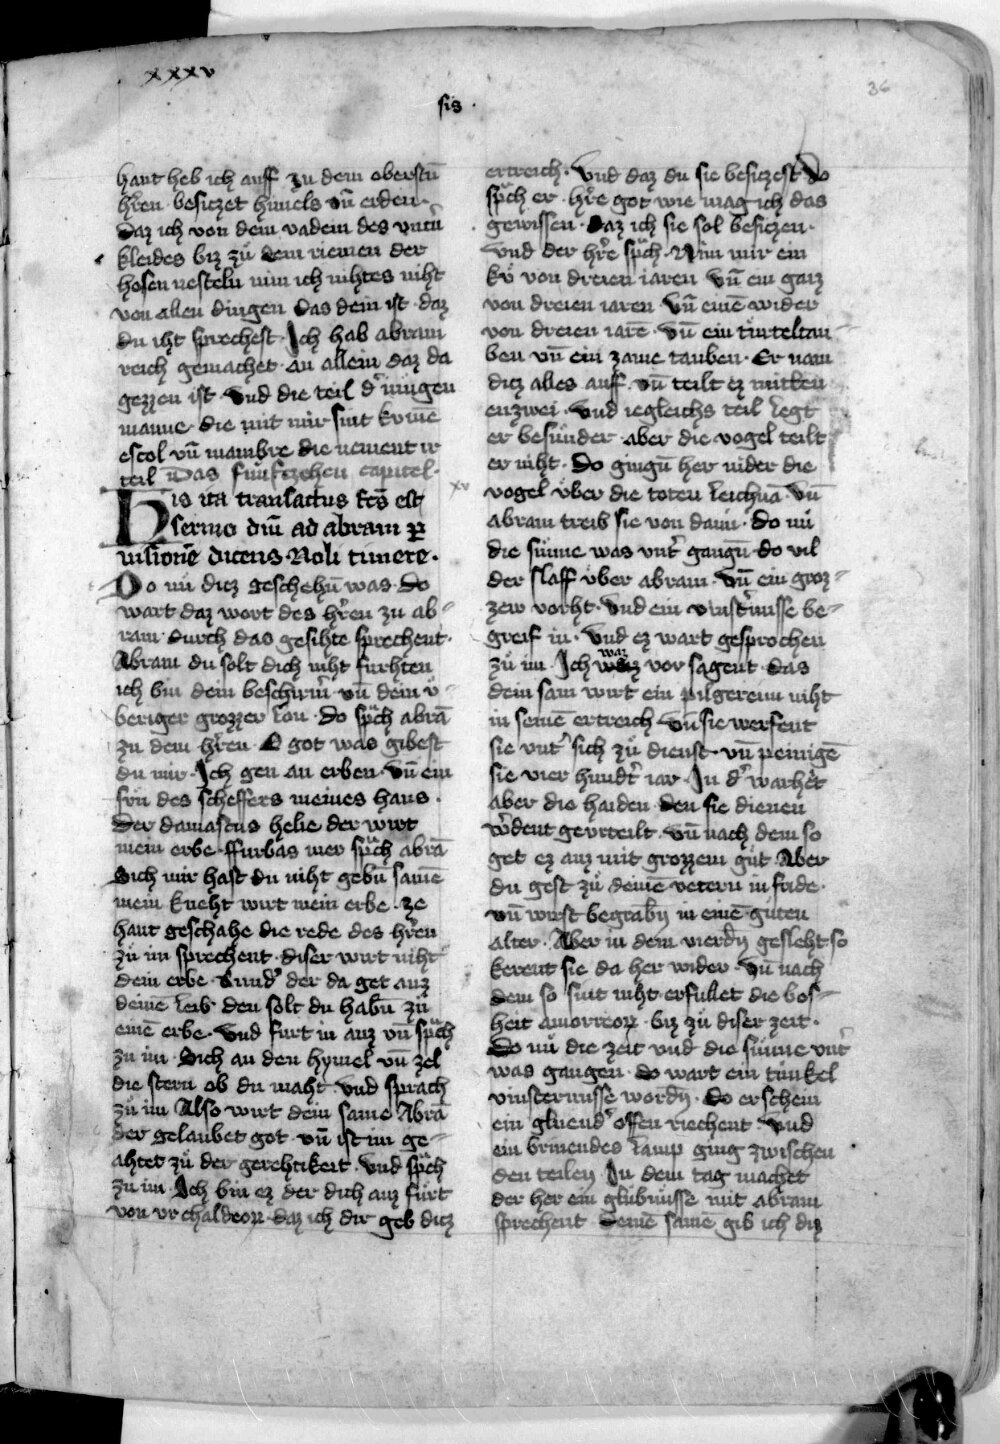 xxxv
36
sis ·
hant heb ich auff zu dem oberstn̄
hr̄en · besiczet himels vn̄ erden ·
Daz ich von dem vadem des vntn̄
kleides biz zů dem riemen der
hosen nesteln nim ich nihtes niht
von allen dingen das dein ist · daz
du iht sprechest · Ich hab abram
reich gemachet · an allein daz da
gezzen ist · Vnd die teil d̓ iungen
manne die mit mir sint kvmē
escol vn̄ mambre die nement ir
teil Das funftzehen capitel ·
His ita transactus fc̄s est
sermo dn̄i ad abram ꝑ
uisionē dicens · Noli timere ·
Do nů dicz geschehn̄ was · do
wart daz wort des hr̄en zu ab-
ram · durch das gesihte sprechent ·
Abram du solt dich niht furhten
ich bin dein beschirm̄ vn̄ dein v̈-
beriger grozzer lon · do sp̄ch abrā
zu dem hr̄en · O got was gibest
du mir · Ich gen an erben · vn̄ ein
sůn des scheffers meines haus ·
Der damascus helie der wirt
mein erbe · ffurbas mer sp̄ch abrā
Sich mir hast du niht gebn̄ samē
mein kneht wirt mein erbe · ze
hant geschahe die rede des hr̄en
zů im sprechent · diser wirt niht
dein erbe · Sund̓ der da get auz
deinē leib den solt du habn̄ zů
einē erbe · Vnd furt in auz vn̄ sp̄ch
zu im · Sich an den hymel vn̄ zel
die stern ob du maht · vnd sprach
zů im Also wirt dein same Abrā
der gelaubet got · vn̄ ist im ge-
ahtet zů der gerehtikeit · Vnd sp̄ch
zu im · Ich bin ez der dich auz fůrt
von vr chaldeoꝝ · daz ich dir geb dicz
ertreich · Vnd daz du sie besiczest Do
sp̄ch er · hr̄e got wie mag ich das
gewissen · daz ich sie sol besiczen ·
Vnd der hr̄e sp̄ch · Nim mir ein
ků von dreien iaren vn̄ ein gaiz
von dreien iaren vn̄ einē wider
von dreien iarē · vn̄ ein türteltau-
ben vn̄ ein zame tauben · Er nam
dicz alles auff vn̄ teilt ez mitten
enzwei · Vnd iegleichs teil legt
er besunder aber die vogel teilt
er niht · Do gingn̄ her nider die
xv
vogel v̈ber die toten leichnā · Vn̄
abram treib sie von dann · do nů
die sunne was vnt̓ gangn̄ · do vil
der slaff v̈ber abram · vn̄ ein groz-
zew vorht · Vnd ein vinst̓nusse be-
greif in · Vnd ez wart gesprochen
waz
zů im · Ich vor sagent · das
dein sam wirt ein pilgereim niht
in seinē ertreich vn̄ sie werfent
sie vnt̓ sich zů dienst vn̄ peinigē
sie vier hundt̓ iar · In d̓ warheit
aber die haiden den sie dienen
w̓dent gevrteilt · vn̄ nach dem so
get ez auz mit grozzem gůt Aber
du gest zů deinē vetern in fride ·
vn̄ wirst begrabn̄ in einē guten
alter · Aber in dem vierdn̄ gesleht so
kerent sie da her wider · Vn̄ nach
dem so sint niht erfullet die bos-
heit amorreoꝝ biz zů diser zeit ·
Do nů die zeit vnd die sunne vnt̓
was gangen · do wart ein tunkel
vinsternusse wordn̄ · do erschein
ein gluend̓ offen riechent · Vnd
ein brinendes lamp ging zwischen
den teilen In dem tag machet
der her ein glubnusse mit abram
sprechent deinē samē gib ich diz